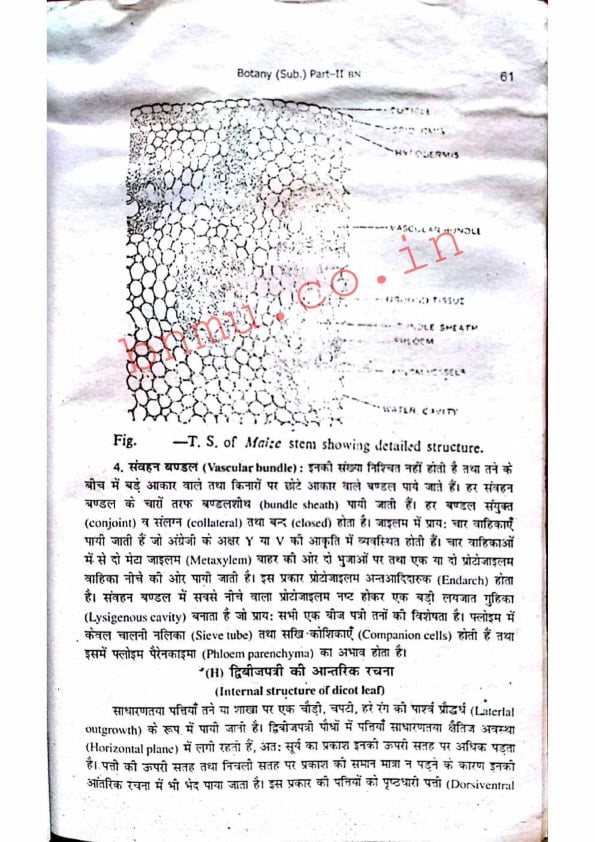 Botany (Sub.) Part-II BN
61
CUTICLE
EPIDERMIS
HYPODERMIS
VASCULAR BUNDLE
GROUND TISSUE
BUNDLE SHEATH
PHLOEM
XYLEM VESSELS
WATER CAVITY
bnmu.co.in
Fig. —T. S. of Maize stem showing detailed structure.
4. संवहन बण्डल (Vascular bundle) : इनकी संख्या निश्चित नहीं होती है तथा तने के
बीच में बड़े आकार वाले तथा किनारों पर छोटे आकार वाले बण्डल पाये जाते हैं। हर संवहन
बण्डल के चारों तरफ बण्डलशीथ (bundle sheath) पायी जाती हैं। हर बण्डल संयुक्त
(conjoint) व संलग्न (collateral) तथा बन्द (closed) होता है। जाइलम में प्राय: चार वाहिकाएँ
पायी जाती हैं जो अंग्रेजी के अक्षर Y या V की आकृति में व्यवस्थित होती हैं। चार वाहिकाओं
में से दो मेटा जाइलम (Metaxylem) बाहर की ओर दो भुजाओं पर तथा एक या दो प्रोटोजाइलम
वाहिका नीचे की ओर पायी जाती है। इस प्रकार प्रोटोजाइलम अन्तआदिदारुक (Endarch) होता
है। संवहन बण्डल में सबसे नीचे वाला प्रोटोजाइलम नष्ट होकर एक बड़ी लयजात गुहिका
(Lysigenous cavity) बनाता है जो प्राय: सभी एक बीज पत्री तनों की विशेषता है। फ्लोइम में
केवल चालनी नलिका (Sieve tube) तथा सखि-कोशिकाएँ (Companion cells) होती हैं तथा
इसमें फ्लोइम पैरेनकाइमा (Phloem parenchyma) का अभाव होता है।
(H) द्विबीजपत्री की आन्तरिक रचना
(Internal structure of dicot leaf)
साधारणतया पत्तियाँ तने या शाखा पर एक चौड़ी, चपटी, हरे रंग की पार्श्व प्रौद्धर्ध (Laterlal
outgrowth) के रूप में पायी जाती है। द्विबीजपत्री पौधों में पत्तियाँ साधारणतया क्षैतिज अवस्था
(Horizontal plane) में लगी रहती हैं, अत: सूर्य का प्रकाश इनकी ऊपरी सतह पर अधिक पड़ता
है। पत्ती की ऊपरी सतह तथा निचली सतह पर प्रकाश की समान मात्रा न पड़ने के कारण इनकी
आंतरिक रचना में भी भेद पाया जाता है। इस प्रकार की पत्तियों को पृष्ठधारी पत्ती (Dorsiventral